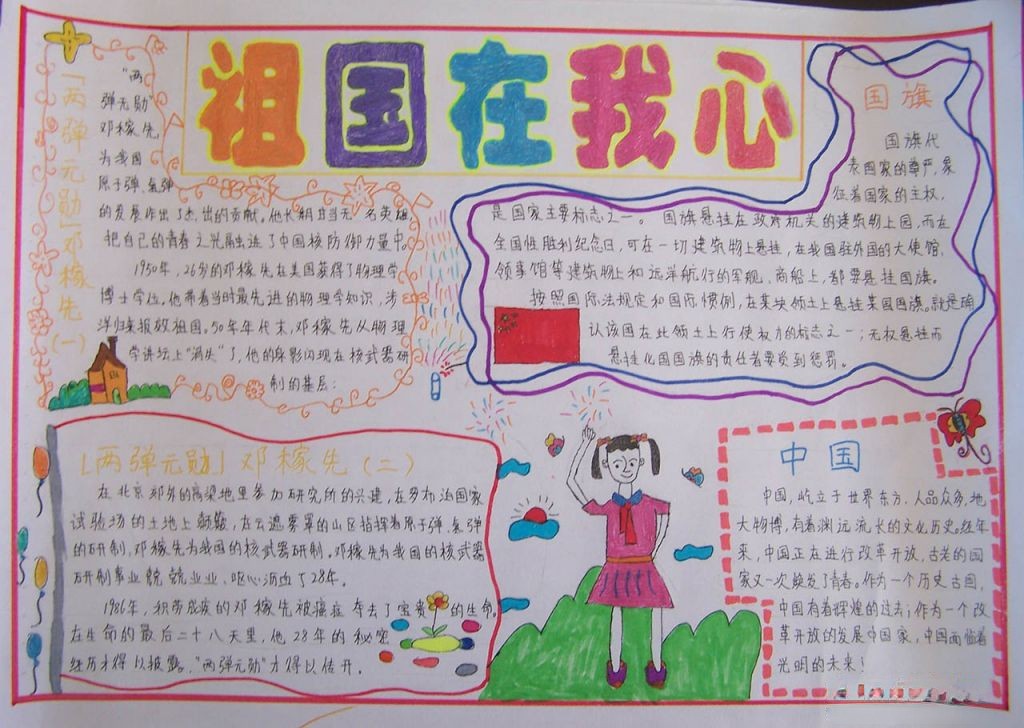 祖国在我心
「两弹元勋」邓稼先（一）
"两
弹元勋"
邓稼先
为我国
原子弹、氢弹
的发展作出了杰出的贡献。他长期甘当无名英雄,
把自己的青春之光融进了中国核防御力量中。
1950年,26岁的邓稼先在美国获得了物理学
博士学位。他带着当时最先进的物理学知识,涉
洋归来报效祖国。50年年代末,邓稼先从物理
学讲坛上"消失"了,他的身影闪现在核武器研
制的基层:
国旗
国旗代
表国家的尊严,象
征着国家的主权,
是国家主要标志之一。国旗悬挂在政府机关的建筑物上园,而在
全国性胜利纪念日,可在一切建筑物上悬挂,在我国驻外国的大使馆,
领事馆等建筑物上和远洋航行的军舰,商船上,都要悬挂国旗。
按照国际法规定和国际惯例,在某块领土上悬挂某国国旗。就是确
认该国在此领土上行使权力的标志之一;无权悬挂而
悬挂化国国旗的责任者要受到惩罚。
「两弹元勋」邓稼先(二)
在北京郊外的高粱地里参加研究所的兴建,在罗布泊国家
试验场的土地上颠簸,在云遮雾罩的山区指挥着原子弹、氢弹
的研制,邓稼先为我国的核武器研制。邓稼先为我国的核武器
研制事业兢兢业业,呕心沥血了28年。
1986年,积劳成疾的邓稼先被癌症夺去了宝贵的生命。
在生命的最后二十八天里,他28年的秘密
经历才得以披露。"两弹元勋"才得以估开。
中国
中国,屹立于世界东方,人品众多,地
大物博,有着渊远流长的文化历史。经年
来,中国正在进行改革开放,古老的国
家又一次焕发了青春。作为一个历史古国,
中国有着辉煌的过去;作为一个改
革开放的发展中国家,中国面临着
光明的未来!